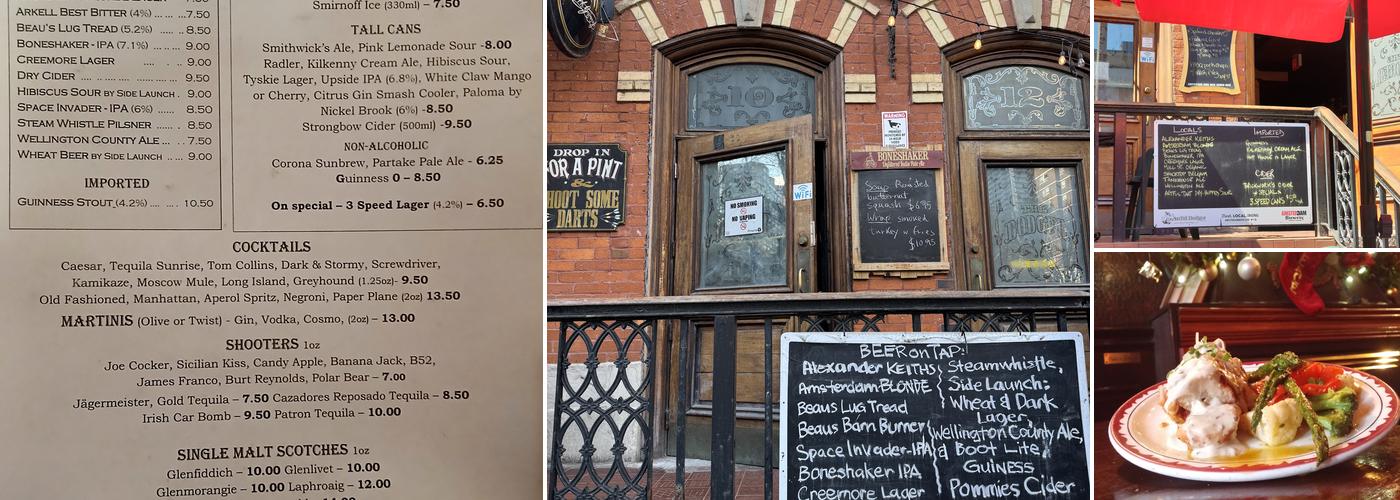 ARKELL BEST BITTER (4%) ... ... ...7.50
BEAU'S LUG TREAD (5.2%) ..... .. 8.50
BONESHAKER - IPA (7.1%) ... ... 9.00
CREEMORE LAGER .... .. 9.00
DRY CIDER .... .. .... .... .. ... 9.50
HIBISCUS SOUR BY SIDE LAUNCH . 9.00
SPACE INVADER - IPA (6%) ..... 8.50
STEAM WHISTLE PILSNER ...... . 8.50
WELLINGTON COUNTY ALE ... . . 7.50
WHEAT BEER BY SIDE LAUNCH .. ... 9.00
IMPORTED
GUINNESS STOUT (4.2%) .... .... 10.50
Smirnoff Ice (330ml) – 7.50
TALL CANS
Smithwick's Ale, Pink Lemonade Sour -8.00
Radler, Kilkenny Cream Ale, Hibiscus Sour,
Tyskie Lager, Upside IPA (6.8%), White Claw Mango
or Cherry, Citrus Gin Smash Cooler, Paloma by
Nickel Brook (6%) -8.50
Strongbow Cider (500ml) -9.50
NON-ALCOHOLIC
Corona Sunbrew, Partake Pale Ale - 6.25
Guinness 0 – 8.50
On special – 3 Speed Lager (4.2%) – 6.50
COCKTAILS
Caesar, Tequila Sunrise, Tom Collins, Dark & Stormy, Screwdriver,
Kamikaze, Moscow Mule, Long Island, Greyhound (1.25oz)- 9.50
Old Fashioned, Manhattan, Aperol Spritz, Negroni, Paper Plane (2oz) 13.50
MARTINIS (Olive or Twist) - Gin, Vodka, Cosmo, (2oz) – 13.00
SHOOTERS 1oz
Joe Cocker, Sicilian Kiss, Candy Apple, Banana Jack, B52,
James Franco, Burt Reynolds, Polar Bear – 7.00
Jägermeister, Gold Tequila – 7.50 Cazadores Reposado Tequila – 8.50
Irish Car Bomb – 9.50 Patron Tequila – 10.00
SINGLE MALT SCOTCHES 1oz
Glenfiddich – 10.00 Glenlivet – 10.00
Glenmorangie – 10.00 Laphroaig – 12.00
10
12
DROP IN
FOR A PINT
&
SHOOT SOME
DARTS
NO SMOKING
NO VAPING
WiFi
WARNING
BONESHAKER
Soup Roasted
butternut
squash $6.95
Wrap smoked
turkey w fries
$10.95
BEER on TAP:
Alexander KEITHS
Amsterdam BLONDE
Beaus Lug Tread
Beaus Barn Burner
Space Invader-IPA
Boneshaker IPA
Creemore Lager
Steamwhistle,
Side Launch:
Wheat & Dark
Lager,
Wellington County Ale,
Boot Lite,
GUINESS
Pommies Cider
WiFi
LOCALS
ALEXANDER KEITHS
AMSTERDAM BLONDE
BONESHAKER IPA
CREEMORE LAGER
WELLINGTON ALE
IMPORTED
GUINNESS
KILKENNY CREAM ALE
CIDER
3 SPEED CANS
AMSTERDAM